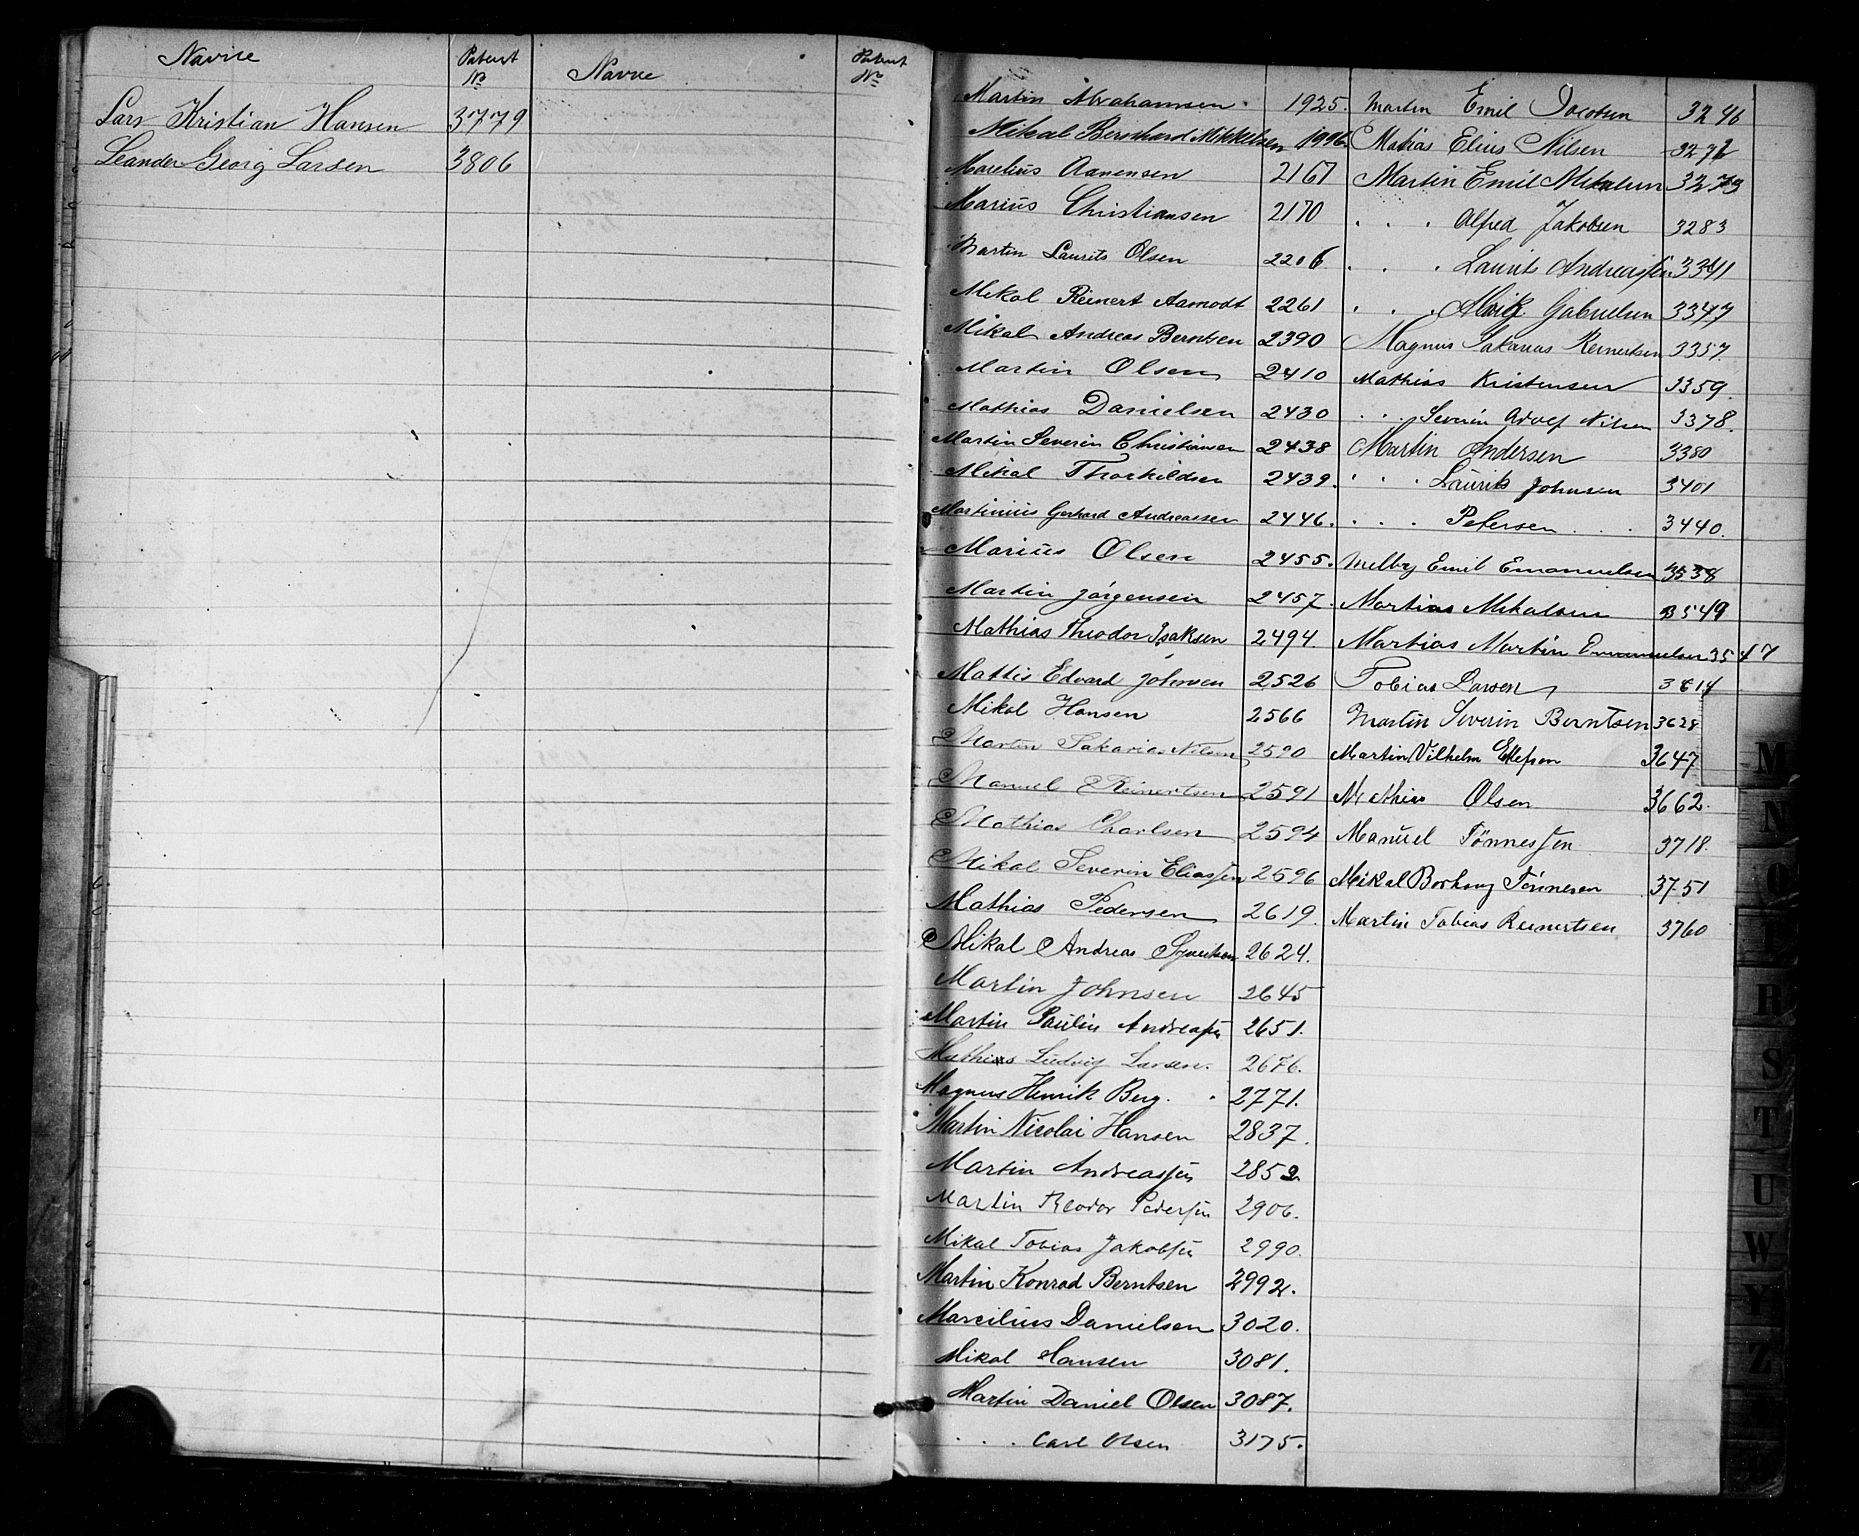 Navne Patent No Navne Patent No
Lars Kristian Hansen 3779
Leander Georg Larsen 3806
Martin Abrahamsen 1925.
Mikal Bernhard Mikkelsen 1996
Marelius Aanensen 2167
Marius Christiansen 2170
Martin Laurits Olsen 2206
Mikal Reinert Aamodt 2261
Mikal Andreas Berntsen 2390
Martin Olsen 2410
Mathias Danielsen 2430
Martin Severin Christiansen 2438
Mikal Thorkildsen 2439.
Martinius Gerhard Andreassen 2446.
Marius Olsen 2455.
Martin Jörgensen 2457.
Mathias Theodor Isaksen 2494.
Mattis Edvard Johnsen 2526
Mikal Hansen 2566
Martin Sakarias Nilsen 2590
Manuel E Reinertsen 2591
Mathias Charlsen 2594
Mikal Severin Eliassen 2596
Mathias Pedersen 2619.
Mikal Andreas 2624.
Martin Johnsen 2645
Martin Paulin Andreassen 2651.
Mathias Ludvig Larsen. 2676.
Magnus Henrik Berg. 2771.
Martin Nicolai Hansen 2837.
Martin Andreassen 2852
Martin Teodor Pedersen 2906.
Mikal Tobias Jakobsen 2990.
Martin Konrad Berntsen 2992.
Marcilius Danielsen 3020.
Mikal Hansen 3081.
Martin Daniel Olsen 3087.
. . . Carl Olsen 3175.
Martin Emil Jacobsen 3246
Matias Elius Nilsen 3272
Martin Emil Mikalsen 3273
. . . Alfred Jakobsen 3283
. . . Laurits Andreassen 3341
. . . Gabrielsen 3347
Magnus Sakarias Reinertsen 3357.
Mathias Kristensen 3359.
. . . Severin Adolf Nilsen 3378.
Martin Andersen 3380
. . . Laurits Johnsen 3401
. . . Petersen . . . 3440.
Melby Emil Emanuelsen 3538
Martias Mikalsen 3549
Martias Martin Emanuelsen 3547
Tobias Larsen 3614
Martin Severin Berntsen 3628
Martin Vilhelm Ellefsen 3647
Mathias Olsen 3662.
Manuel Tönnessen 3718.
Mikal Borhaug Tönnesen 3751
Martin Tobias Reinertsen 3760
M
N
O
P
R
S
T
U
W
Y
Z